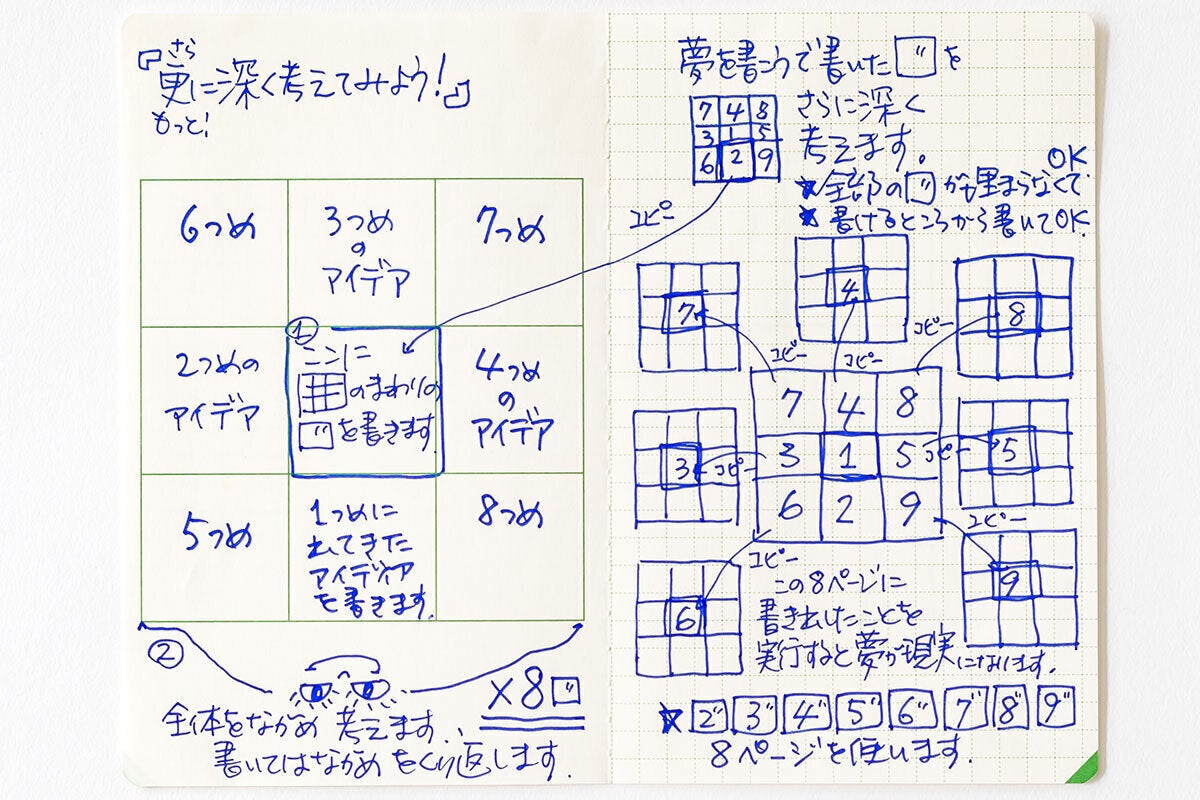 さら
『更に深く考えてみよう!』
もっと!
6つめ
3つめ
の
アイデア
7つめ
2つめの
アイデア
①
ここに
のまわりの
を書きます
4つめ
の
アイデア
5つめ
1つめに
出てきた
アイディア
を書きます.
8つめ
②
×8
全体をながめ 考えます..
書いてはながめをくり返します.
夢を書こうで書いた を
さらに深く
考えます。
7 4 8
3 1 5
6 2 9
コピー
OK
★全部の が埋まらなくて
★書けるところから書いてOK.
7
4
8
コピー
コピー
コピー
7 4 8
3 1 5
6 2 9
3
コピー
コピー
5
コピー
コピー
6
9
この8ページに
書き出したことを
実行すると夢が現実になります.
★ 2" 3" 4" 5" 6" 7" 8" 9"
8ページを使います.